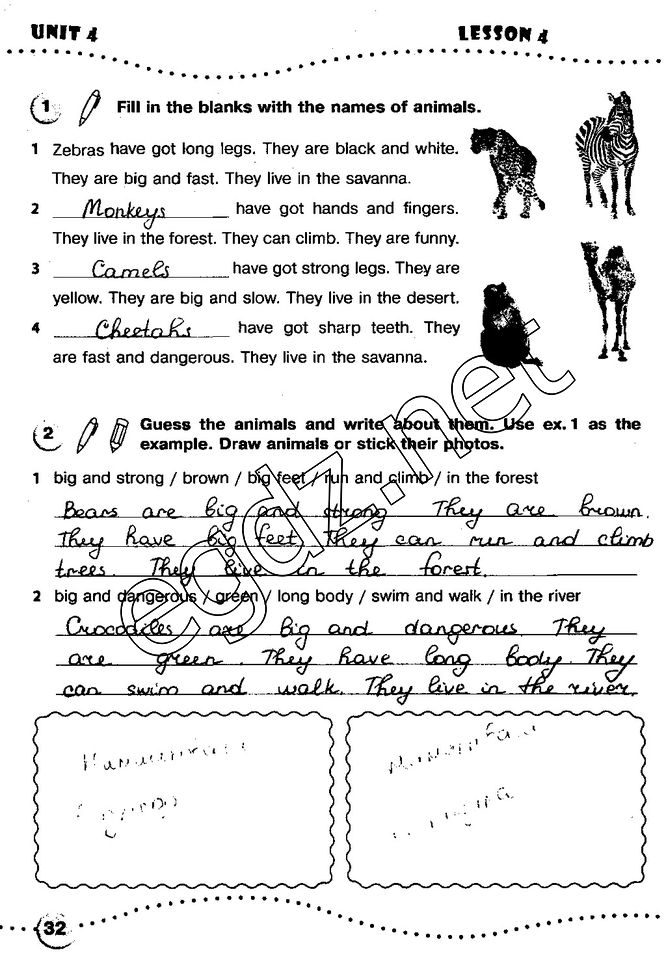 UNIT 4 LESSON 4
1 Fill in the blanks with the names of animals.
1 Zebras have got long legs. They are black and white.
They are big and fast. They live in the savanna.
2 Monkeys have got hands and fingers.
They live in the forest. They can climb. They are funny.
3 Camels have got strong legs. They are
yellow. They are big and slow. They live in the desert.
4 Cheetahs have got sharp teeth. They
are fast and dangerous. They live in the savanna.
2 Guess the animals and write about them. Use ex. 1 as the
example. Draw animals or stick their photos.
1 big and strong / brown / big feet / run and climb / in the forest
Bears are big and strong They are brown.
They have big feet. They can run and climb
trees. They live in the forest.
2 big and dangerous / green / long body / swim and walk / in the river
Crocodiles are big and dangerous. They
are green. They have long body. They
can swim and walk. They live in the river.
egdz.net
32